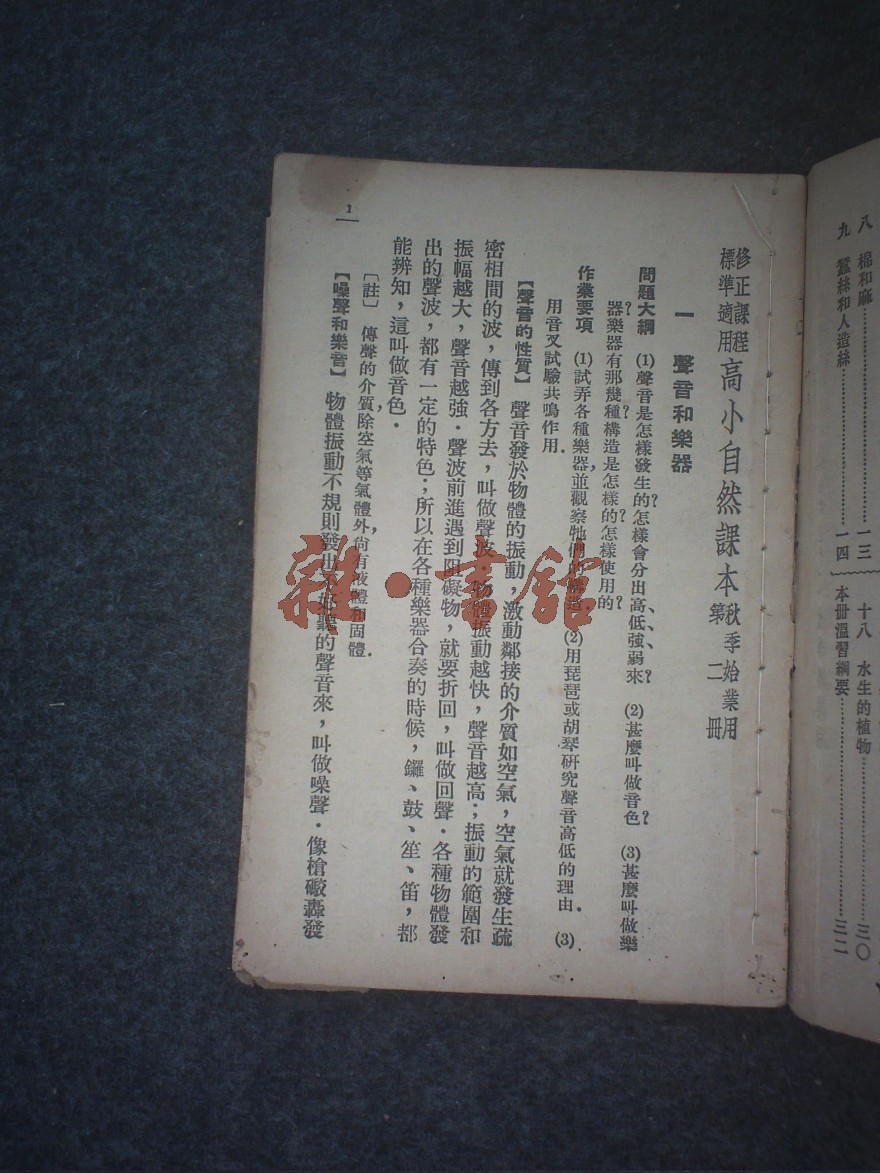 八　棉和麻……………………一三
九　蠶絲和人造絲……………………一四
十八　水生的植物……………………三〇
本冊溫習綱要……………………三二
修正課程標準適用
高小自然課本
秋季始業用
第二冊
一　聲音和樂器
問題大綱　(1)聲音是怎樣發生的?怎樣會分出高、低、強、弱來?　(2)甚麼叫做音色?　(3)甚麼叫做樂
器?樂器有那幾種?構造是怎樣的?怎樣使用的?
作業要項　(1)試弄各種樂器,並觀察牠們的構造.　(2)用琵琶或胡琴研究聲音高低的理由.　(3)
用音叉試驗共鳴作用.
【聲音的性質】　聲音發於物體的振動,激動鄰接的介質如空氣,空氣就發生疏
密相間的波,傳到各方去,叫做聲波.物體振動越快,聲音越高;振動的範圍和
振幅越大,聲音越強.聲波前進遇到阻礙物,就要折回,叫做回聲.各種物體發
出的聲波,都有一定的特色;所以在各種樂器合奏的時候,鑼、鼓、笙、笛,都
能辨知,這叫做音色.
〔註〕　傳聲的介質,除空氣等氣體外,尚有液體和固體.
【噪聲和樂音】　物體振動不規則,發出不好聽的聲音來,叫做噪聲.像槍礮轟發
1
雜·書館